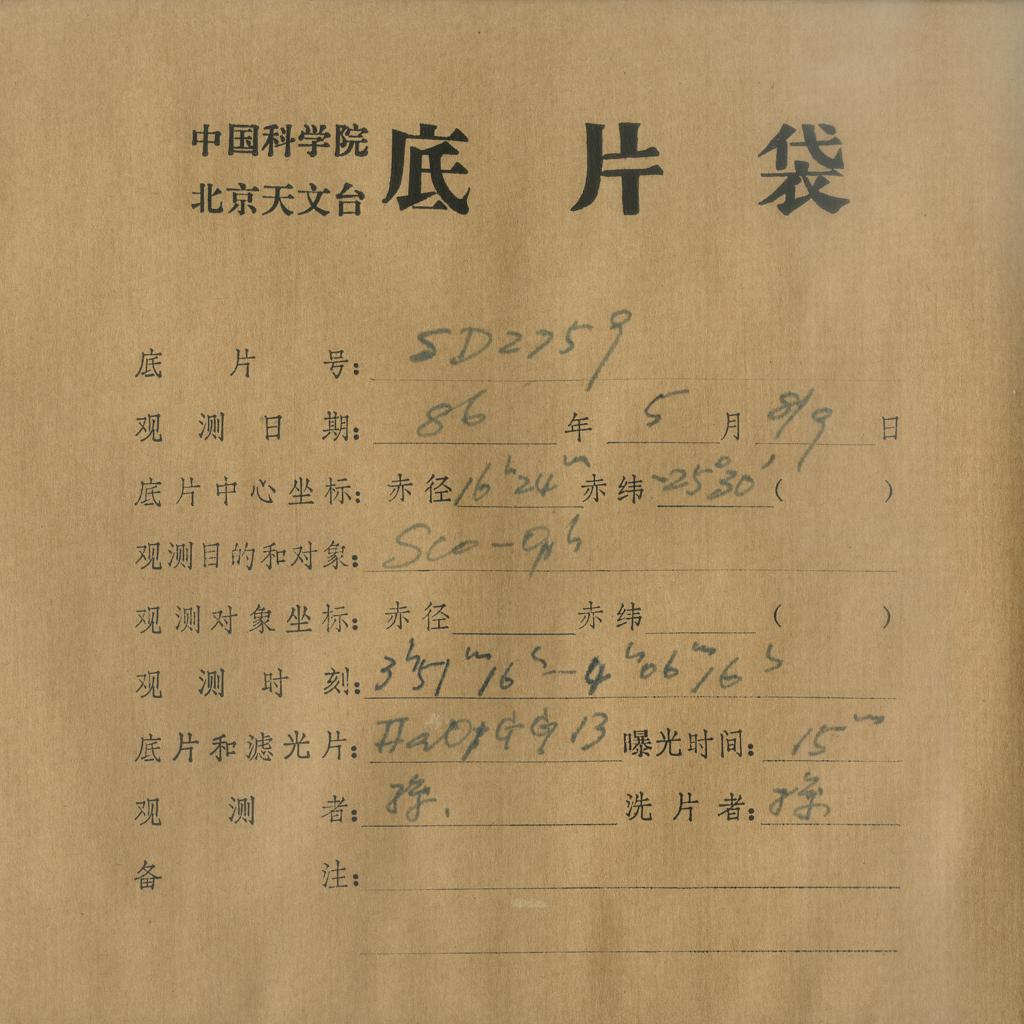 中国科学院
北京天文台
底片袋
底片号: SD2759
观测日期: 86年5月8/9日
底片中心坐标: 赤径16h24m赤纬-25°30′( )
观测目的和对象: Sco-Oph
观测对象坐标: 赤径 赤纬 ( )
观测时刻: 3h51m16s-4h06m16s
底片和滤光片: IIaO+GG13 曝光时间: 15m
观测者: 洗片者:
备注: